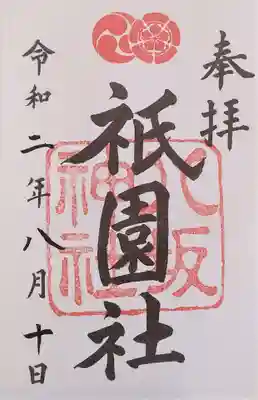 奉拝
八坂
神社
祇園社
令和二年八月十日